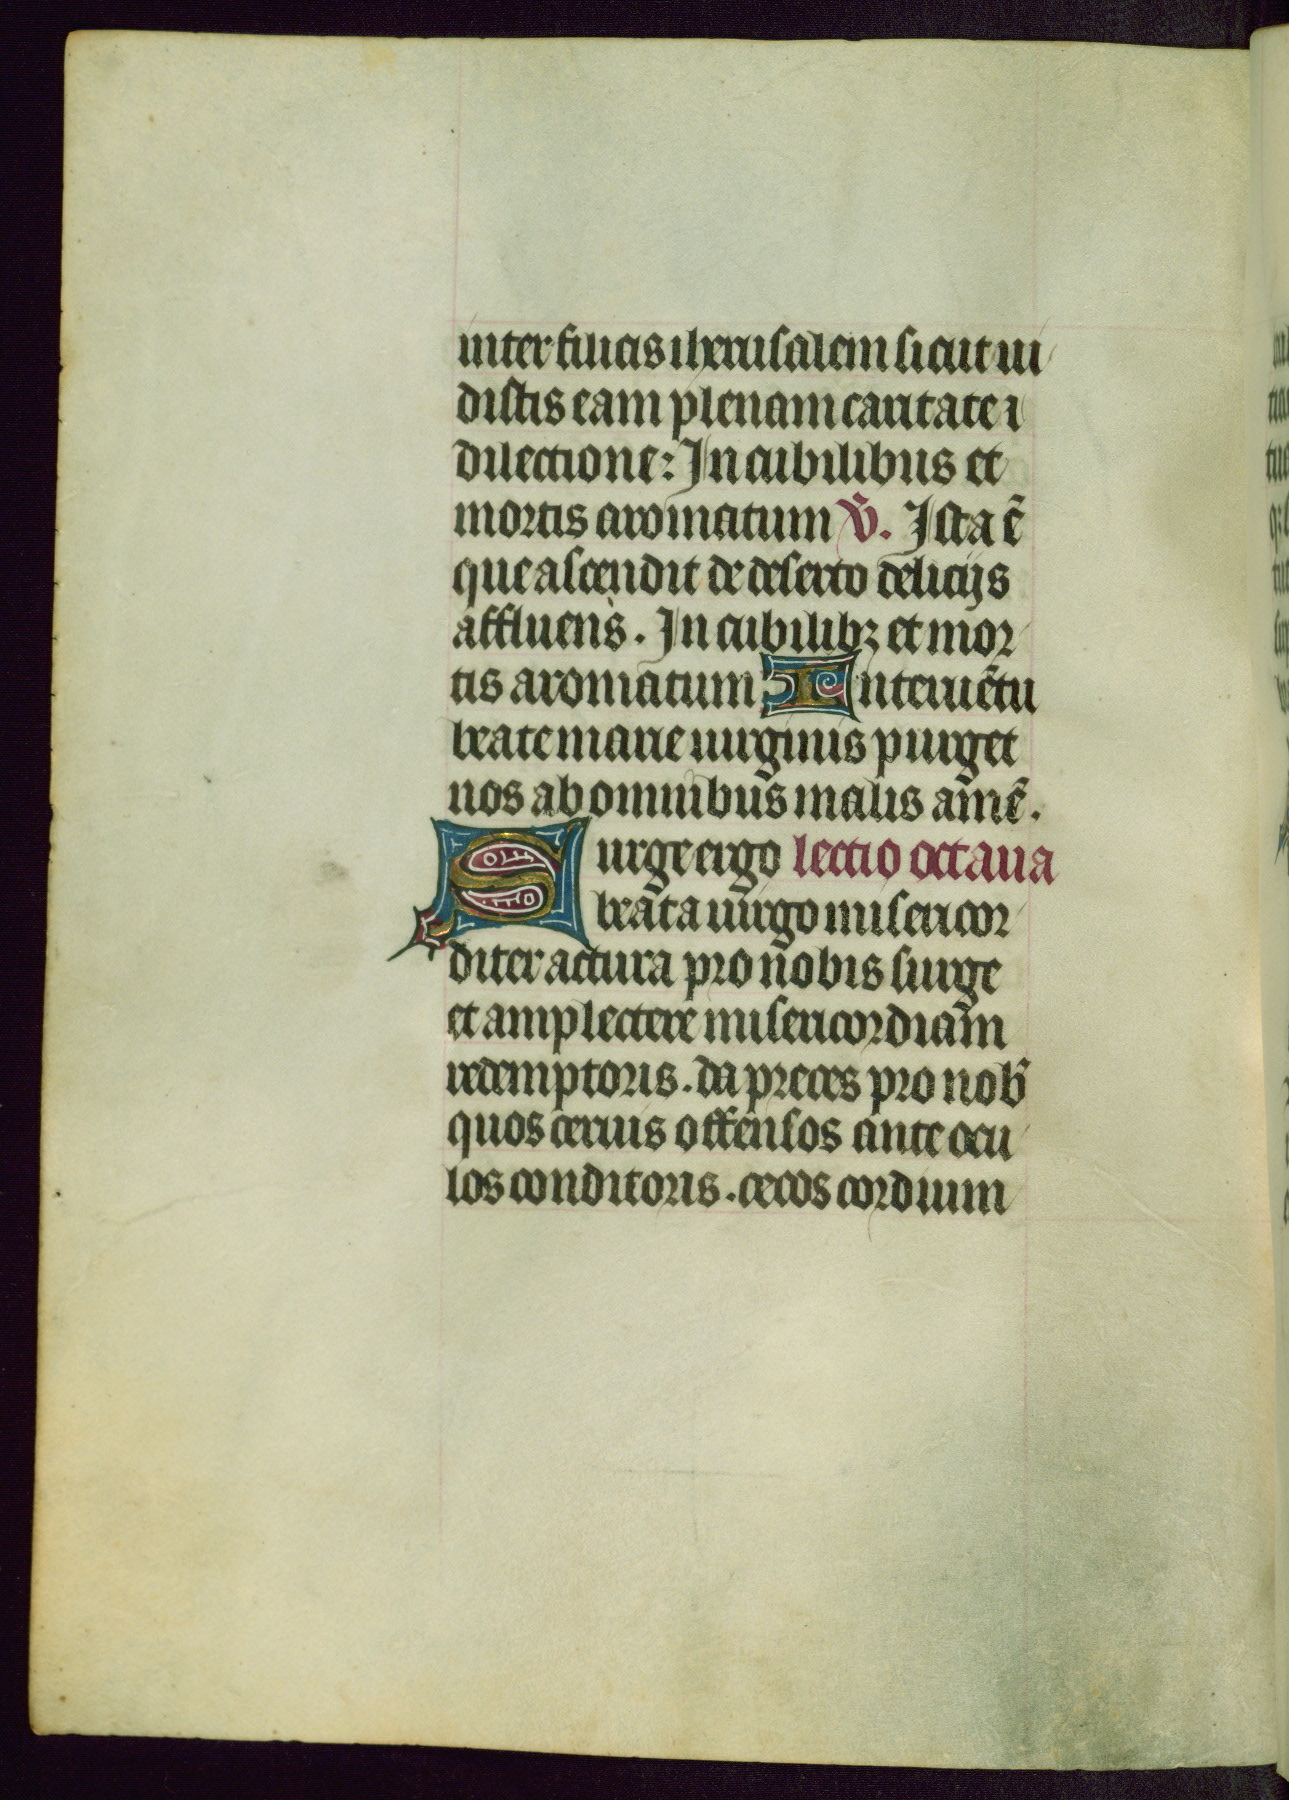 inter filias iherusalem sicut ui
distis eam plenam caritate i
dilectione: In cubilibus et
mortis aromatum v̄. Ista ē
que ascendit de deserto delicijs
affluens. In cubilibꝫ et mor
tis aromatum Interuētu
beate marie uirginis purget
nos ab omnibus malis amē.
Surge ergo lectio octaua
beata uirgo misericor
diter actura pro nobis surge
et amplectere misericordiam
redemptoris. da preces pro nob̄
quos cernis offensos ante ocu
los conditoris. cecos cordium